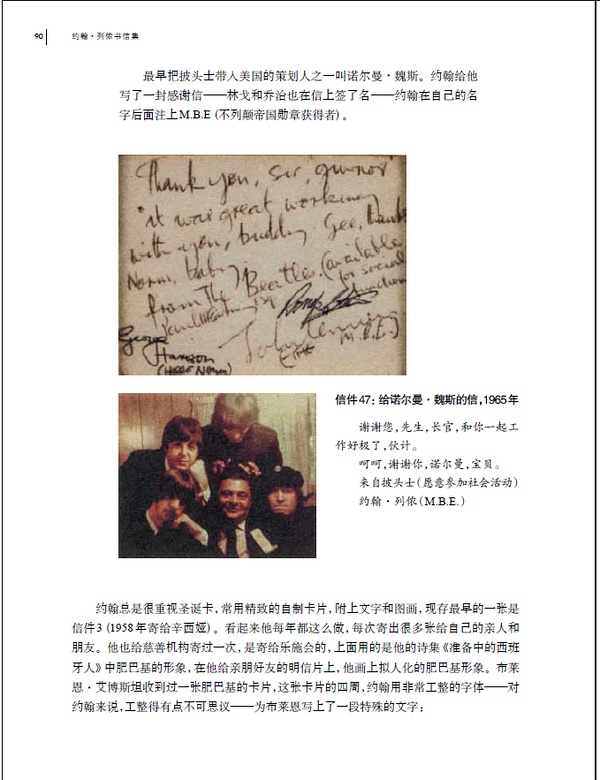 90
约翰·列侬书信集
最早把披头士带入美国的策划人之一叫诺尔曼·魏斯。约翰给他
写了一封感谢信——林戈和乔治也在信上签了名——约翰在自己的名
字后面注上M.B.E（不列颠帝国勋章获得者）。
Thank you, Sir, guvnor
it was great working
with you, buddy. Gee, thanks
Norm, baby.
from The Beatles. (available
for social
functions
George
Harrison
(Hello Norm)
M.B.E.)
信件47：给诺尔曼·魏斯的信，1965年
谢谢您，先生，长官，和你一起工
作好极了，伙计。
呵呵，谢谢你，诺尔曼，宝贝。
来自披头士（愿意参加社会活动）
约翰·列侬（M.B.E.）
约翰总是很重视圣诞卡，常用精致的自制卡片，附上文字和图画，现存最早的一张是
信件3（1958年寄给辛西娅）。看起来他每年都这么做，每次寄出很多张给自己的亲人和
朋友。他也给慈善机构寄过一次，是寄给乐施会的，上面用的是他的诗集《准备中的西班
牙人》中肥巴基的形象，在他给亲朋好友的明信片上，他画上拟人化的肥巴基形象。布莱
恩·艾博斯坦收到过一张肥巴基的卡片，这张卡片的四周，约翰用非常工整的字体——对
约翰来说，工整得有点不可思议——为布莱恩写上了一段特殊的文字：